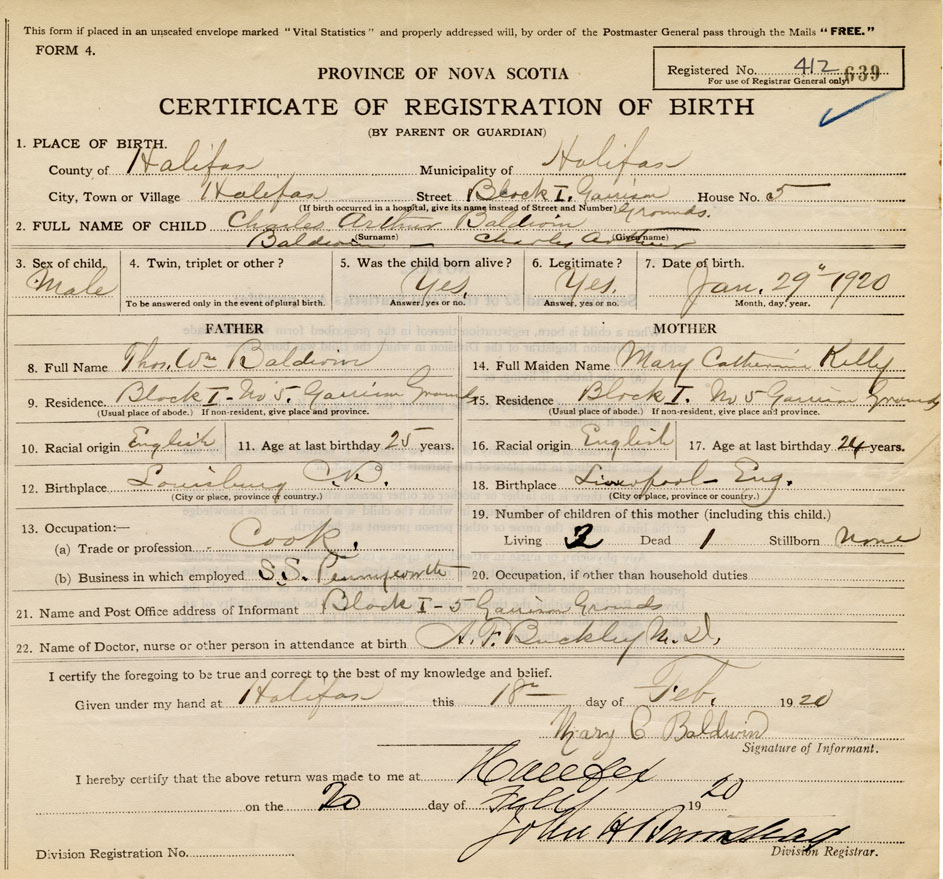 This form if placed in an unsealed envelope marked "Vital Statistics" and properly addressed will, by order of the Postmaster General pass through the Mails "FREE."
FORM 4.
Registered No. 412 639
For use of Registrar General only
PROVINCE OF NOVA SCOTIA
CERTIFICATE OF REGISTRATION OF BIRTH
(BY PARENT OR GUARDIAN)
1. PLACE OF BIRTH.
County of Halifax Municipality of Halifax
City, Town or Village Halifax Street Block I. Garrison Grounds. House No. 5
(If birth occurred in a hospital, give its name instead of Street and Number)
2. FULL NAME OF CHILD Charles Arthur Baldwin
Baldwin (Surname) — Charles Arthur (Given name)
3. Sex of child. 4. Twin, triplet or other? 5. Was the child born alive? 6. Legitimate? 7. Date of birth.
Male Yes. Yes. Jan. 29" 1920
To be answered only in the event of plural birth. Answer, yes or no. Answer, yes or no. Month, day, year.
FATHER MOTHER
8. Full Name Thos. Wm Baldwin 14. Full Maiden Name Mary Catherine Kelly
9. Residence Block I - No 5. Garrison Grounds 15. Residence Block I. No 5 Garrison Grounds
(Usual place of abode.) If non-resident, give place and province. (Usual place of abode.) If non-resident, give place and province.
10. Racial origin English 11. Age at last birthday 25 years. 16. Racial origin English 17. Age at last birthday 24 years.
12. Birthplace Louisburg C.B. 18. Birthplace Liverpool Eng.
(City or place, province or country.) (City or place, province or country.)
13. Occupation:— 19. Number of children of this mother (including this child.)
(a) Trade or profession Cook. Living 2 Dead 1 Stillborn None
(b) Business in which employed S.S. 20. Occupation, if other than household duties
21. Name and Post Office address of Informant Block I - 5 Garrison Grounds
22. Name of Doctor, nurse or other person in attendance at birth A. F. Buckley M.D.
I certify the foregoing to be true and correct to the best of my knowledge and belief.
Given under my hand at Halifax this 18th day of Feb. 1920
Mary C Baldwin
Signature of Informant.
I hereby certify that the above return was made to me at Halifax
on the 20 day of 1920
John H
Division Registration No. Division Registrar.